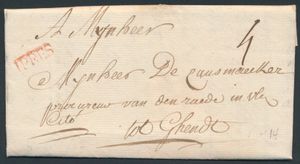 A Mynheer
4
YPRES
Mynheer De
procureur van den raede in vl
Cito
tot Ghendt